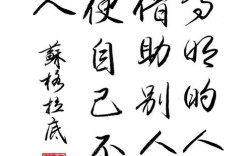 明的人
借助别人
使自己不
人
蘇格拉底